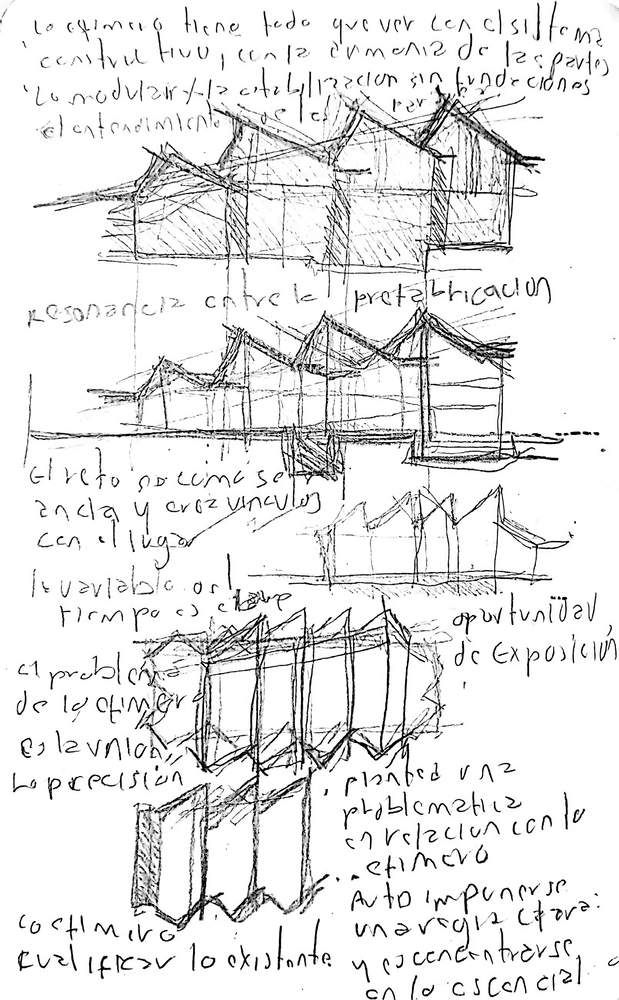 Lo efimero tiene todo que ver con el sistema
constructivo, con la armonia de las partes
Lo modular y la estabilizacion sin fundaciones
el entendimiento de las par
Resonancia entre la prefabricacion
El reto no como se
ancla y crea vinculos
con el lugar
la variable del
tiempo es clave
oportunidad
de Exposición
el problema
de lo efimero
es la union,
La precisión
plantea una
problematica
en relacion con lo
efimero
Auto imponerse
una regla clara:
y es concentrarse
en lo escencial
Lo efimero
cualificar lo existente